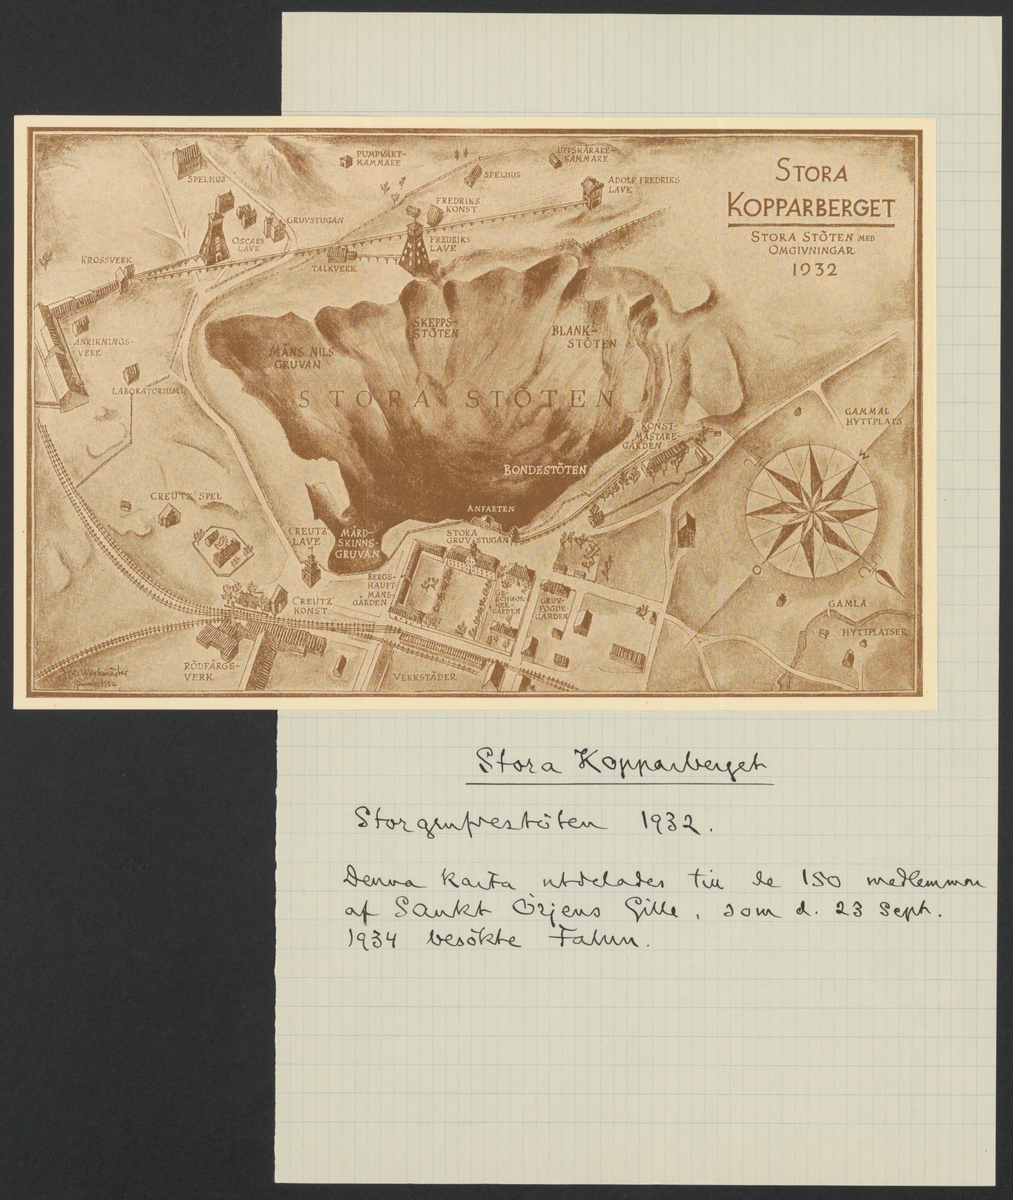 STORA
KOPPARBERGET
STORA STÖTEN MED
OMGIVNINGAR
1932
PUMPVAKT-
KAMMARE
UPPSKÄRARE-
KAMMARE
SPELHUS
SPELHUS
ADOLF FREDRIKS
LAVE
FREDRIKS
KONST
GRUVSTUGAN
OSCARS
LAVE
FREDRIKS
LAVE
KROSSVERK
TALKVERK
SKEPPS-
STÖTEN
BLANK-
STÖTEN
ANRIKNINGS-
VERK
MÅNS NILS
GRUVAN
LABORATORIUM
STORA STÖTEN
GAMMAL
HYTTPLATS
KONST-
MÄSTARE-
GÅRDEN
BONDESTÖTEN
CREUTZ SPEL
ANFARTEN
CREUTZ
LAVE
MÅRD-
SKINNS-
GRUVAN
STORA
GRUVSTUGAN
BERGS-
HAUPT-
MANS-
GÅRDEN
GE-
SCHWOR-
NER-
GÅRDEN
GRUV-
FOGDE-
GÅRDEN
CREUTZ
KONST
GAMLA
HYTTPLATSER
RÖDFÄRGS-
VERK
VERKSTÄDER
1932
Stora Kopparberget
Storgrufvestöten 1932.
Denna karta utdelades till de 150 medlemmar
af Sankt Örjens Gille, som d. 23 Sept.
1934 besökte Falun.